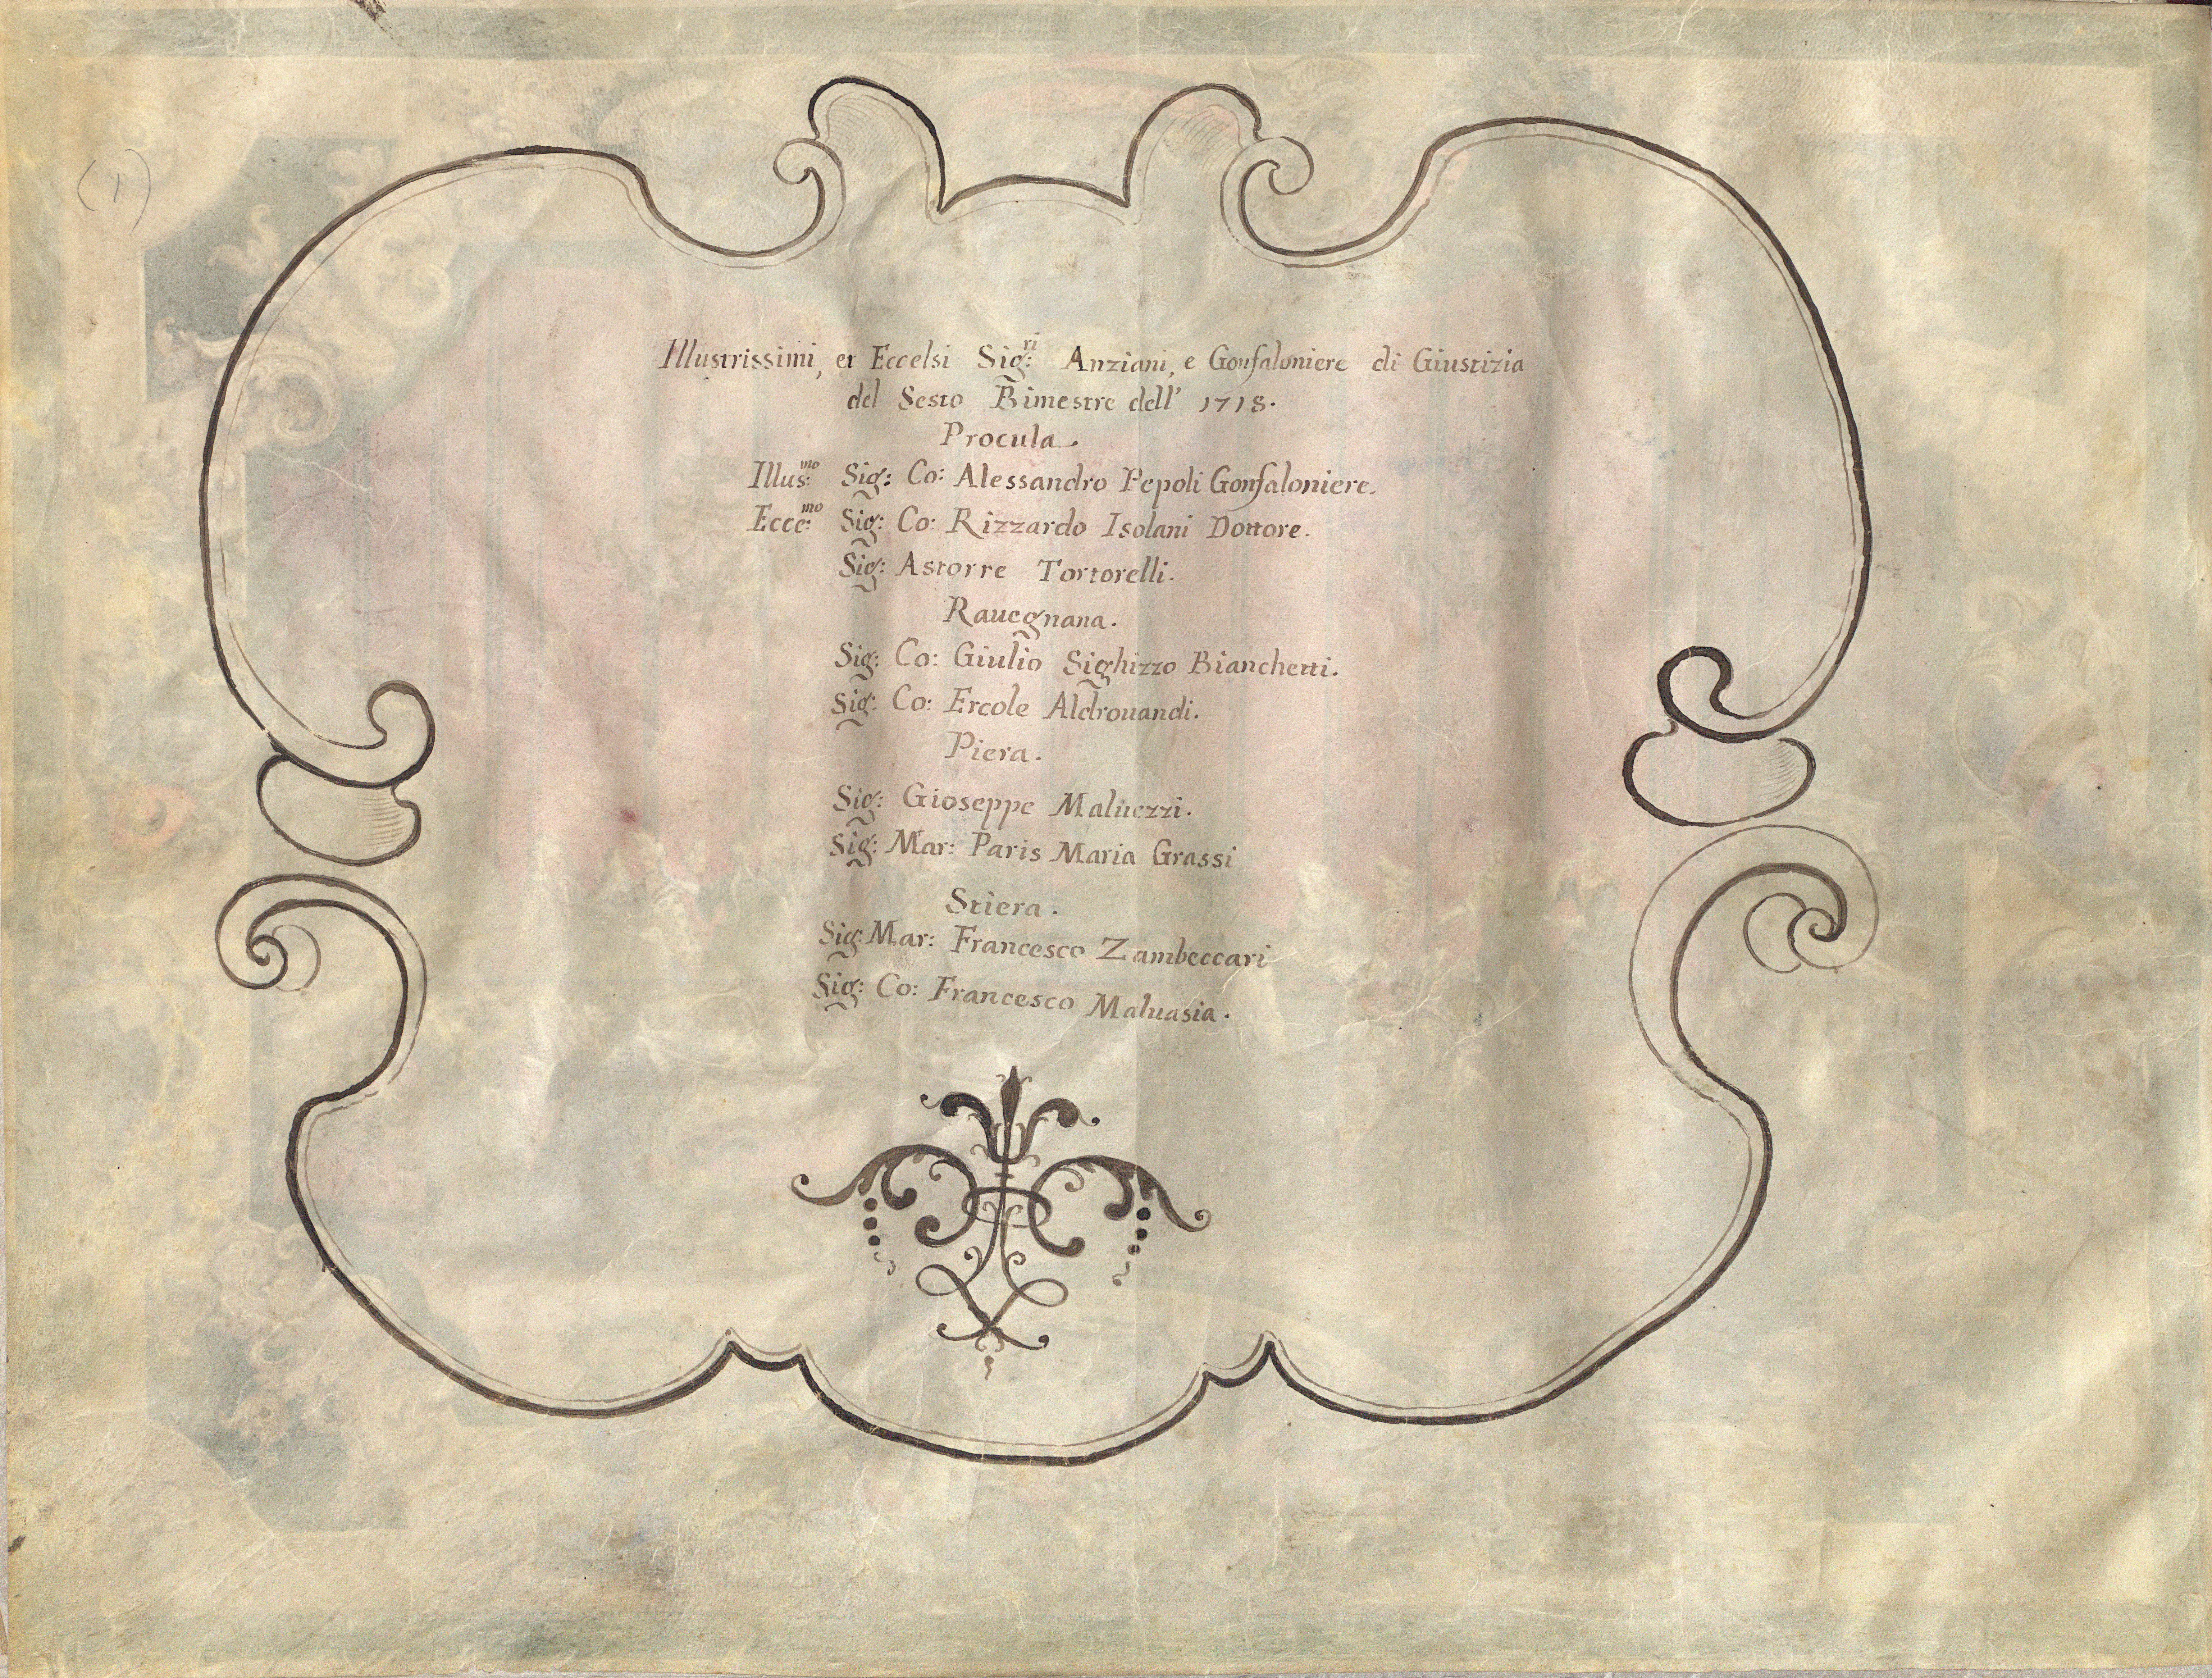 (1)
Illustrissimi, et Eccelsi Sig:ri Anziani, e Gonfaloniere di Giustizia
del Sesto Bimestre dell' 1718.
Procula.
Illus:mo Sig: Co: Alessandro Pepoli Gonfaloniere.
Ecce:mo Sig: Co: Rizzardo Isolani Dottore.
Sig: Astorre Tortorelli.
Rauegnana.
Sig: Co: Giulio Sighizzo Bianchetti.
Sig: Co: Ercole Aldrouandi.
Piera.
Sig: Gioseppe Maluezzi.
Sig: Mar: Paris Maria Grassi
Stiera.
Sig: Mar: Francesco Zambeccari
Sig: Co: Francesco Maluasia.